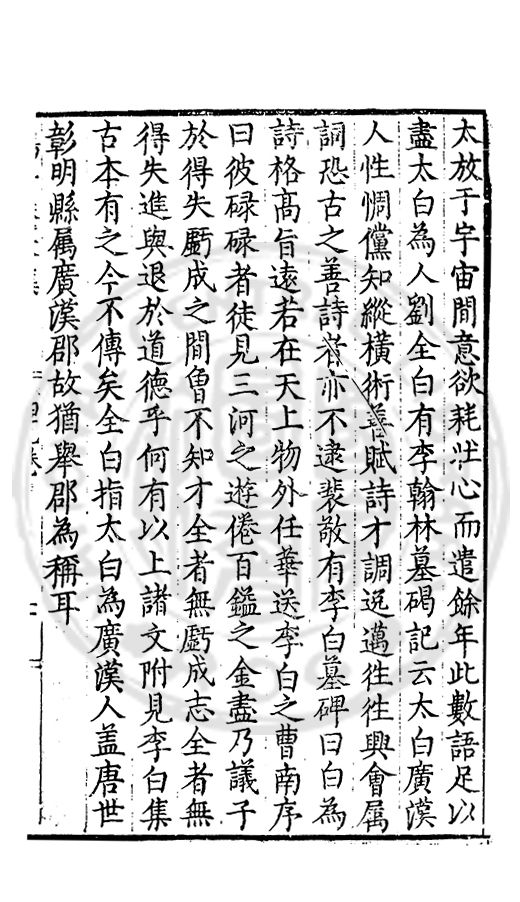 太放于宇宙間意欲耗壯心而遣餘年此數語足以
盡太白為人劉全白有李翰林墓碣記云太白廣漢
人性惆儻知縱橫術善賦詩才調逸邁徃徃興會属
詞恐古之善詩者亦不逮裴敬有李白墓碑曰白為
詩格高旨遠若在天上物外任華送李白之曹南序
曰彼碌碌者徒見三河之遊倦百鎰之金盡乃議子
於得失虧成之間曾不知才全者無虧成志全者無
得失進與退於道德乎何有以上諸文附見李白集
古本有之今不傳矣全白指太白為廣漢人盖唐世
彰明縣属廣漢郡故猶舉郡為稱耳